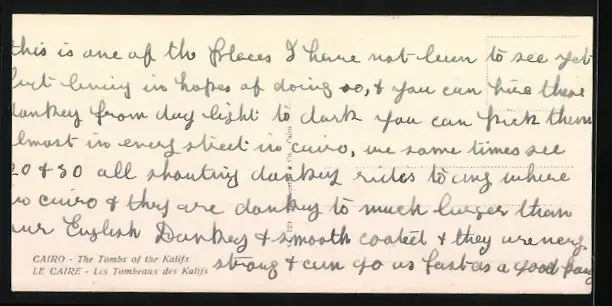 this is one of the places I have not been to see yet
but living in hopes of doing so, & you can hire these
donkey from day light to dark you can pick them
almost in every street in cairo, we some times see
20 & 30 all shouting donkey rides to any where
in cairo & they are donkey to much larger than
our English Donkey & smooth coated & they are very
strong & can go as fast as a good pony
CAIRO - The Tombs of the Kalifs
LE CAIRE - Les Tombeaux des Kalifs